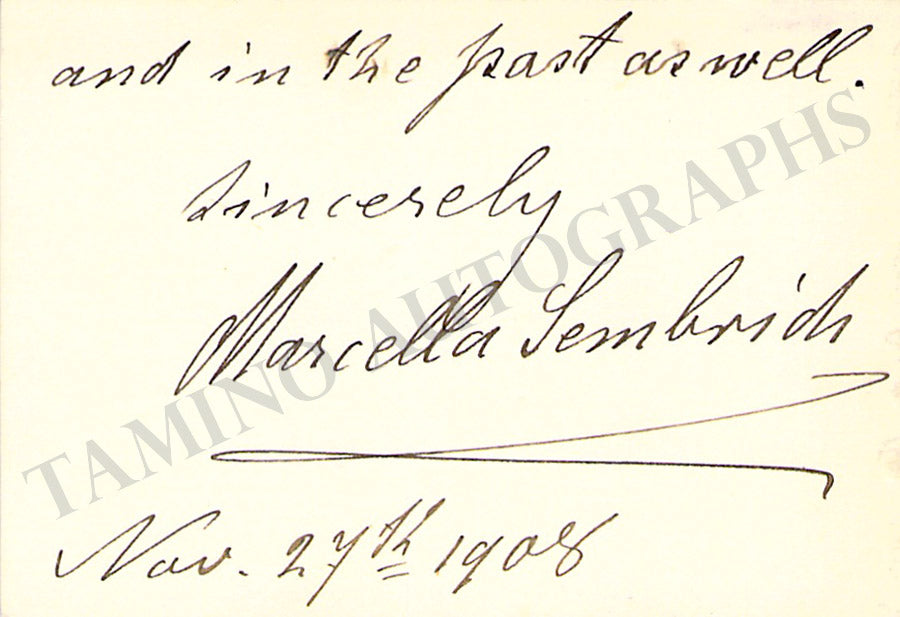 and in the past as well.
Sincerely
Marcella Sembrich
Nov. 27th 1908
TAMINO AUTOGRAPHS